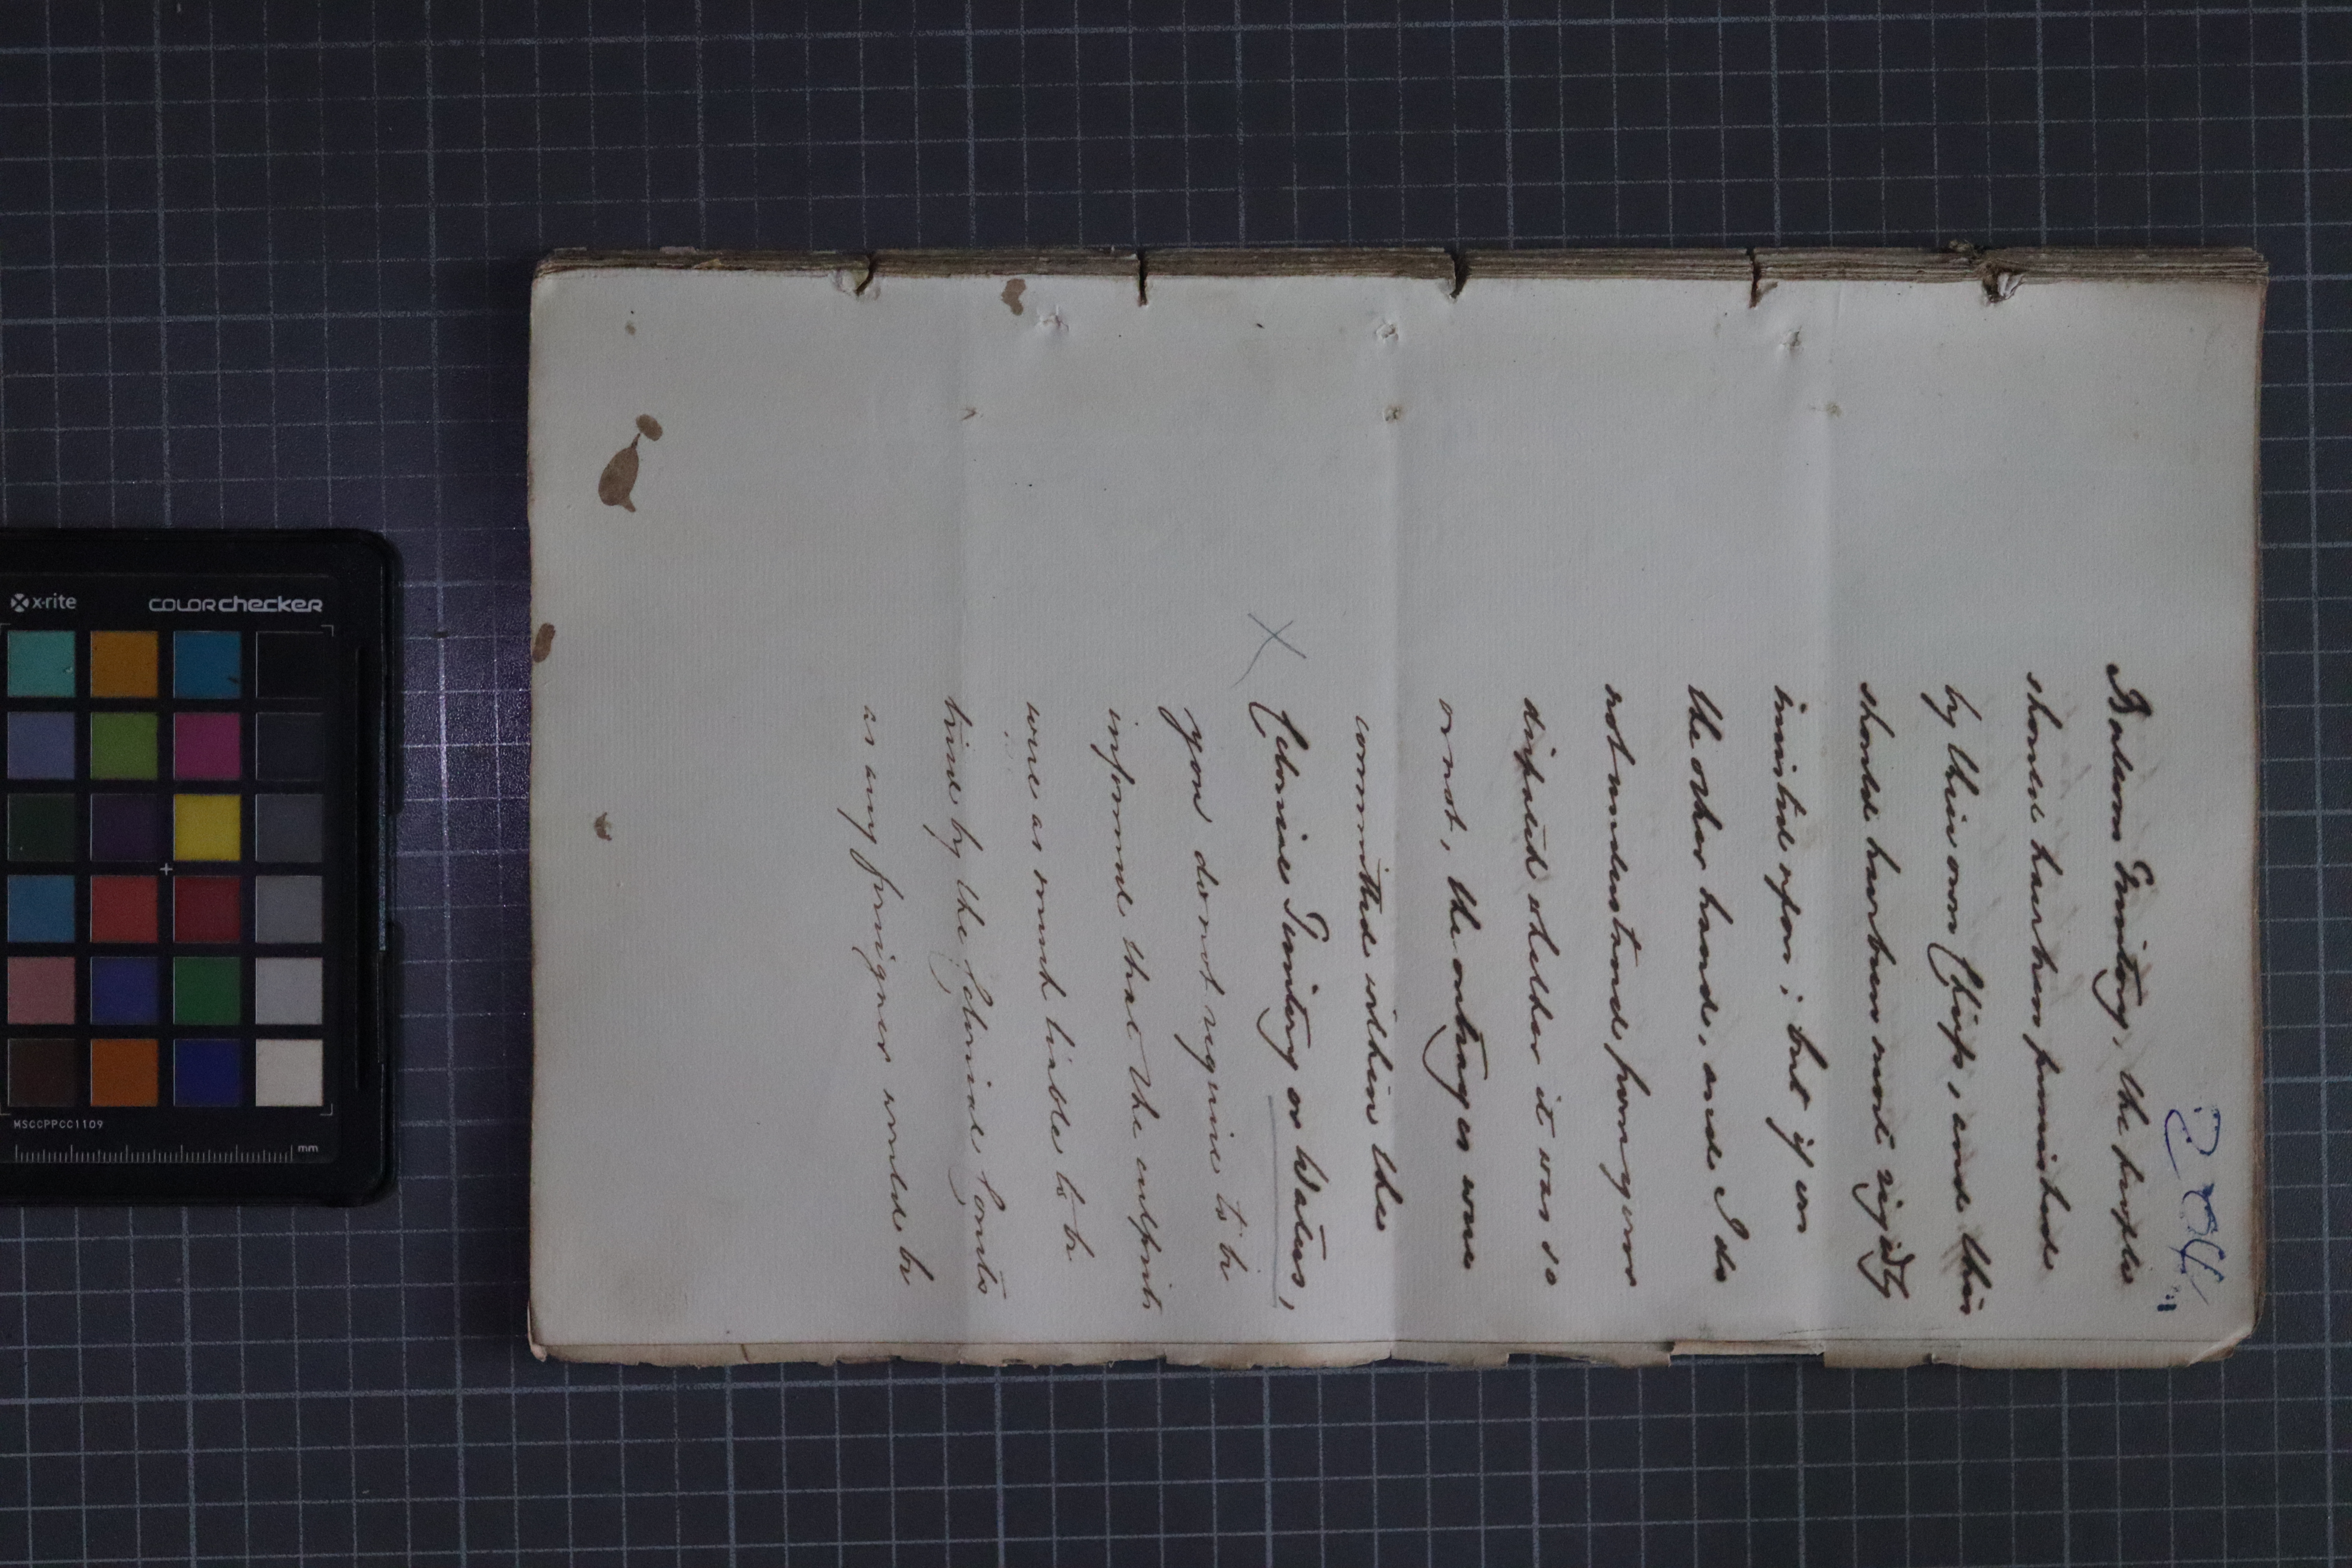 204
Batwan Territory, the people
should have been punished
by their own Chiefs, and this
should have been most rigidly
insisted upon; but if on
the other hand, and I do
not understand from you
disputed whether it was so
or not, the outrages were
committed within the
Colonial Territory or Waters,
you do not require to be
informed that the culprits
were as much liable to be
tried by the Colonial Courts
as any foreigner would be
x-rite
colorchecker
MSCCPPCC1109
mm